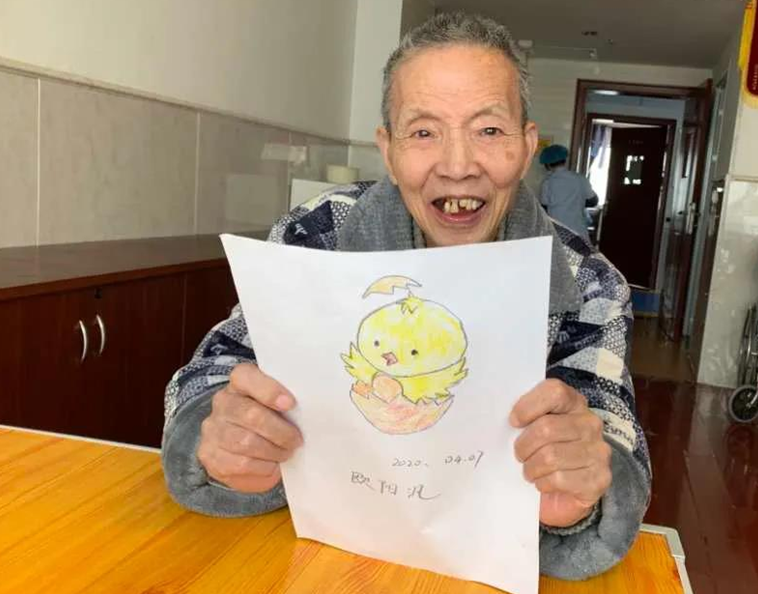 2020. 04.07
欧阳